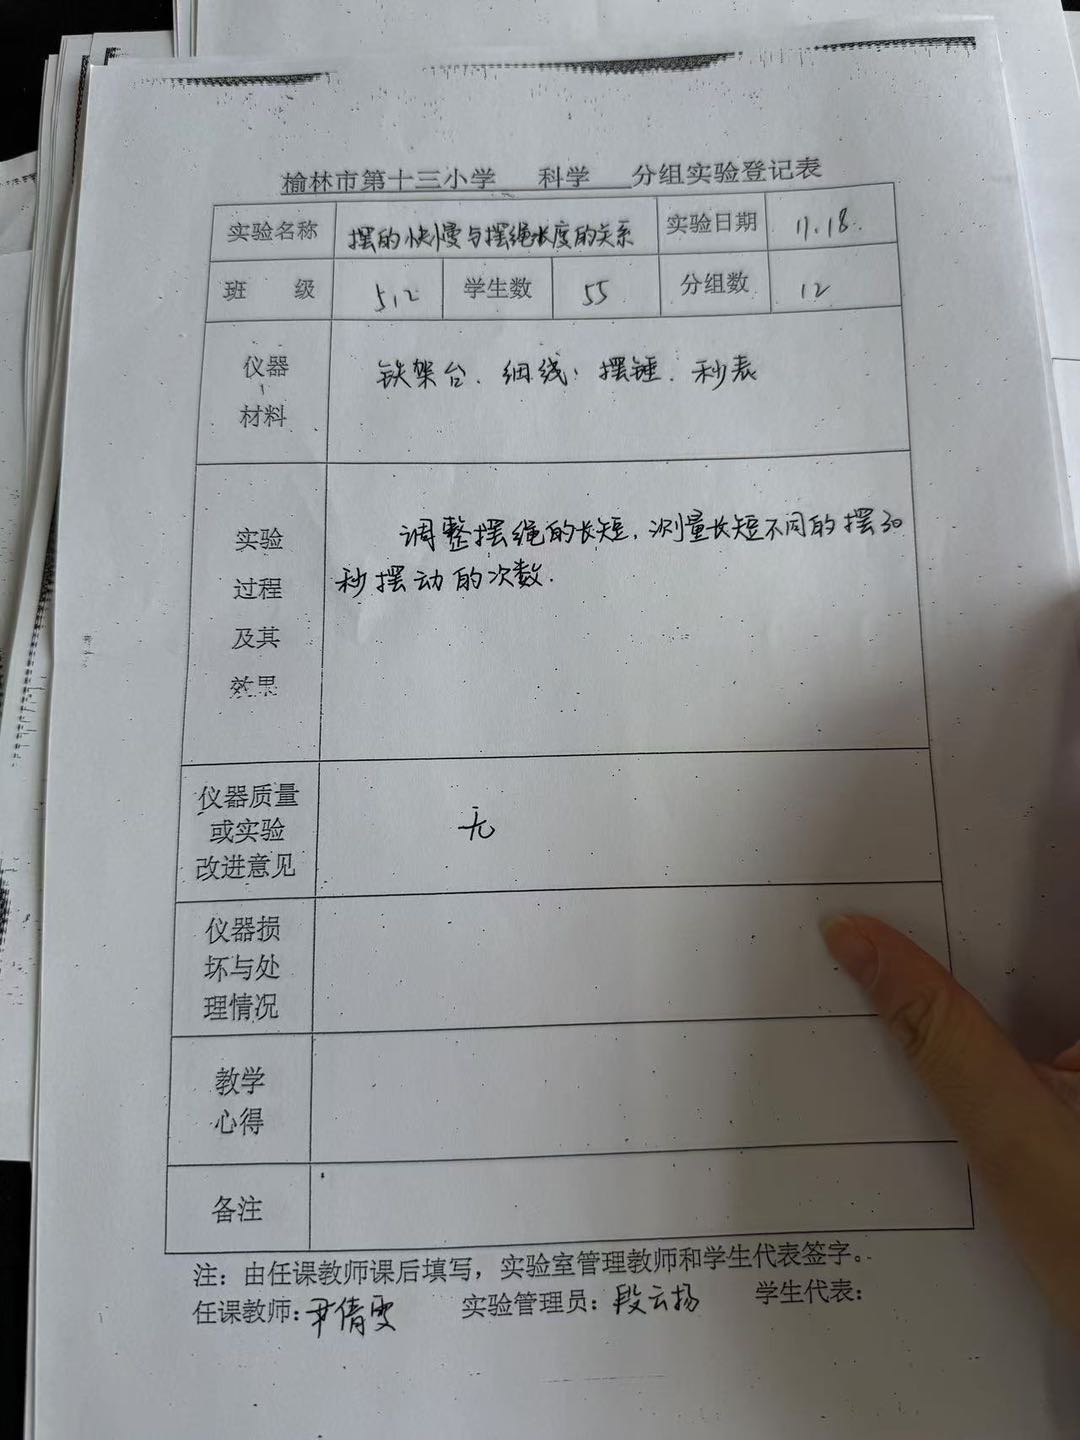 榆林市第十三小学 科学 分组实验登记表
实验名称 摆的快慢与摆绳长度的关系 实验日期 11.18.
班 级 5.12 学生数 55 分组数 12
仪器
、
材料
铁架台、细线、摆锤、秒表
实验
过程
及其
效果
调整摆绳的长短,测量长短不同的摆30
秒摆动的次数.
仪器质量
或实验
改进意见
无
仪器损
坏与处
理情况
教学
心得
备注
注:由任课教师课后填写,实验室管理教师和学生代表签字。
任课教师:尹倩雯 实验管理员:段云扬 学生代表: